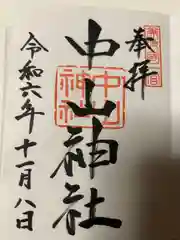 奉拝
中山神社
中山
神社
令和六年十一月八日